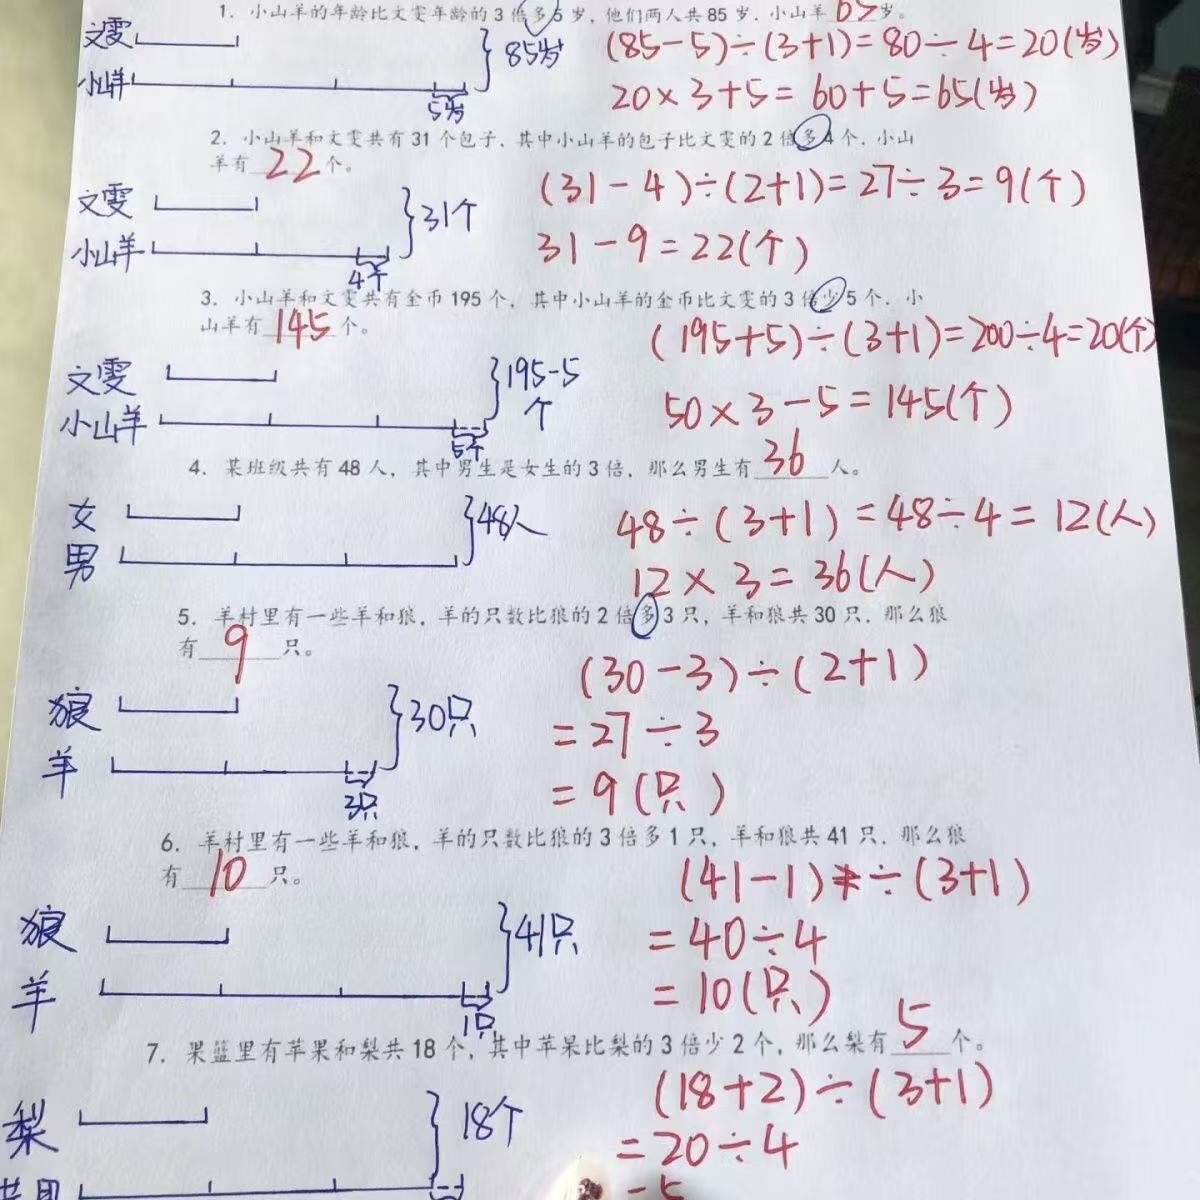 1. 小山羊的年龄比文雯年龄的 3 倍多 5 岁，他们两人共 85 岁．小山羊 65 岁。
文雯
小山羊
85岁
5岁
(85-5)÷(3+1)=80÷4=20(岁)
20×3+5=60+5=65(岁)
2. 小山羊和文雯共有 31 个包子，其中小山羊的包子比文雯的 2 倍多 4 个．小山
羊有 22 个。
文雯
小山羊
31个
4个
(31-4)÷(2+1)=27÷3=9(个)
31-9=22(个)
3. 小山羊和文雯共有金币 195 个，其中小山羊的金币比文雯的 3 倍少 5 个．小
山羊有 145 个。
文雯
小山羊
195-5
个
5个
(195+5)÷(3+1)=200÷4=20(个)
50×3-5=145(个)
4. 某班级共有 48 人，其中男生是女生的 3 倍，那么男生有 36 人。
女
男
48人
48÷(3+1)=48÷4=12(人)
12×3=36(人)
5. 羊村里有一些羊和狼，羊的只数比狼的 2 倍多 3 只，羊和狼共 30 只．那么狼
有 9 只。
狼
羊
30只
3只
(30-3)÷(2+1)
=27÷3
=9(只)
6. 羊村里有一些羊和狼，羊的只数比狼的 3 倍多 1 只，羊和狼共 41 只．那么狼
有 10 只。
狼
羊
41只
1只
(41-1)÷(3+1)
=40÷4
=10(只)
7. 果篮里有苹果和梨共 18 个，其中苹果比梨的 3 倍少 2 个，那么梨有 5 个。
梨
18个
(18+2)÷(3+1)
=20÷4
=5